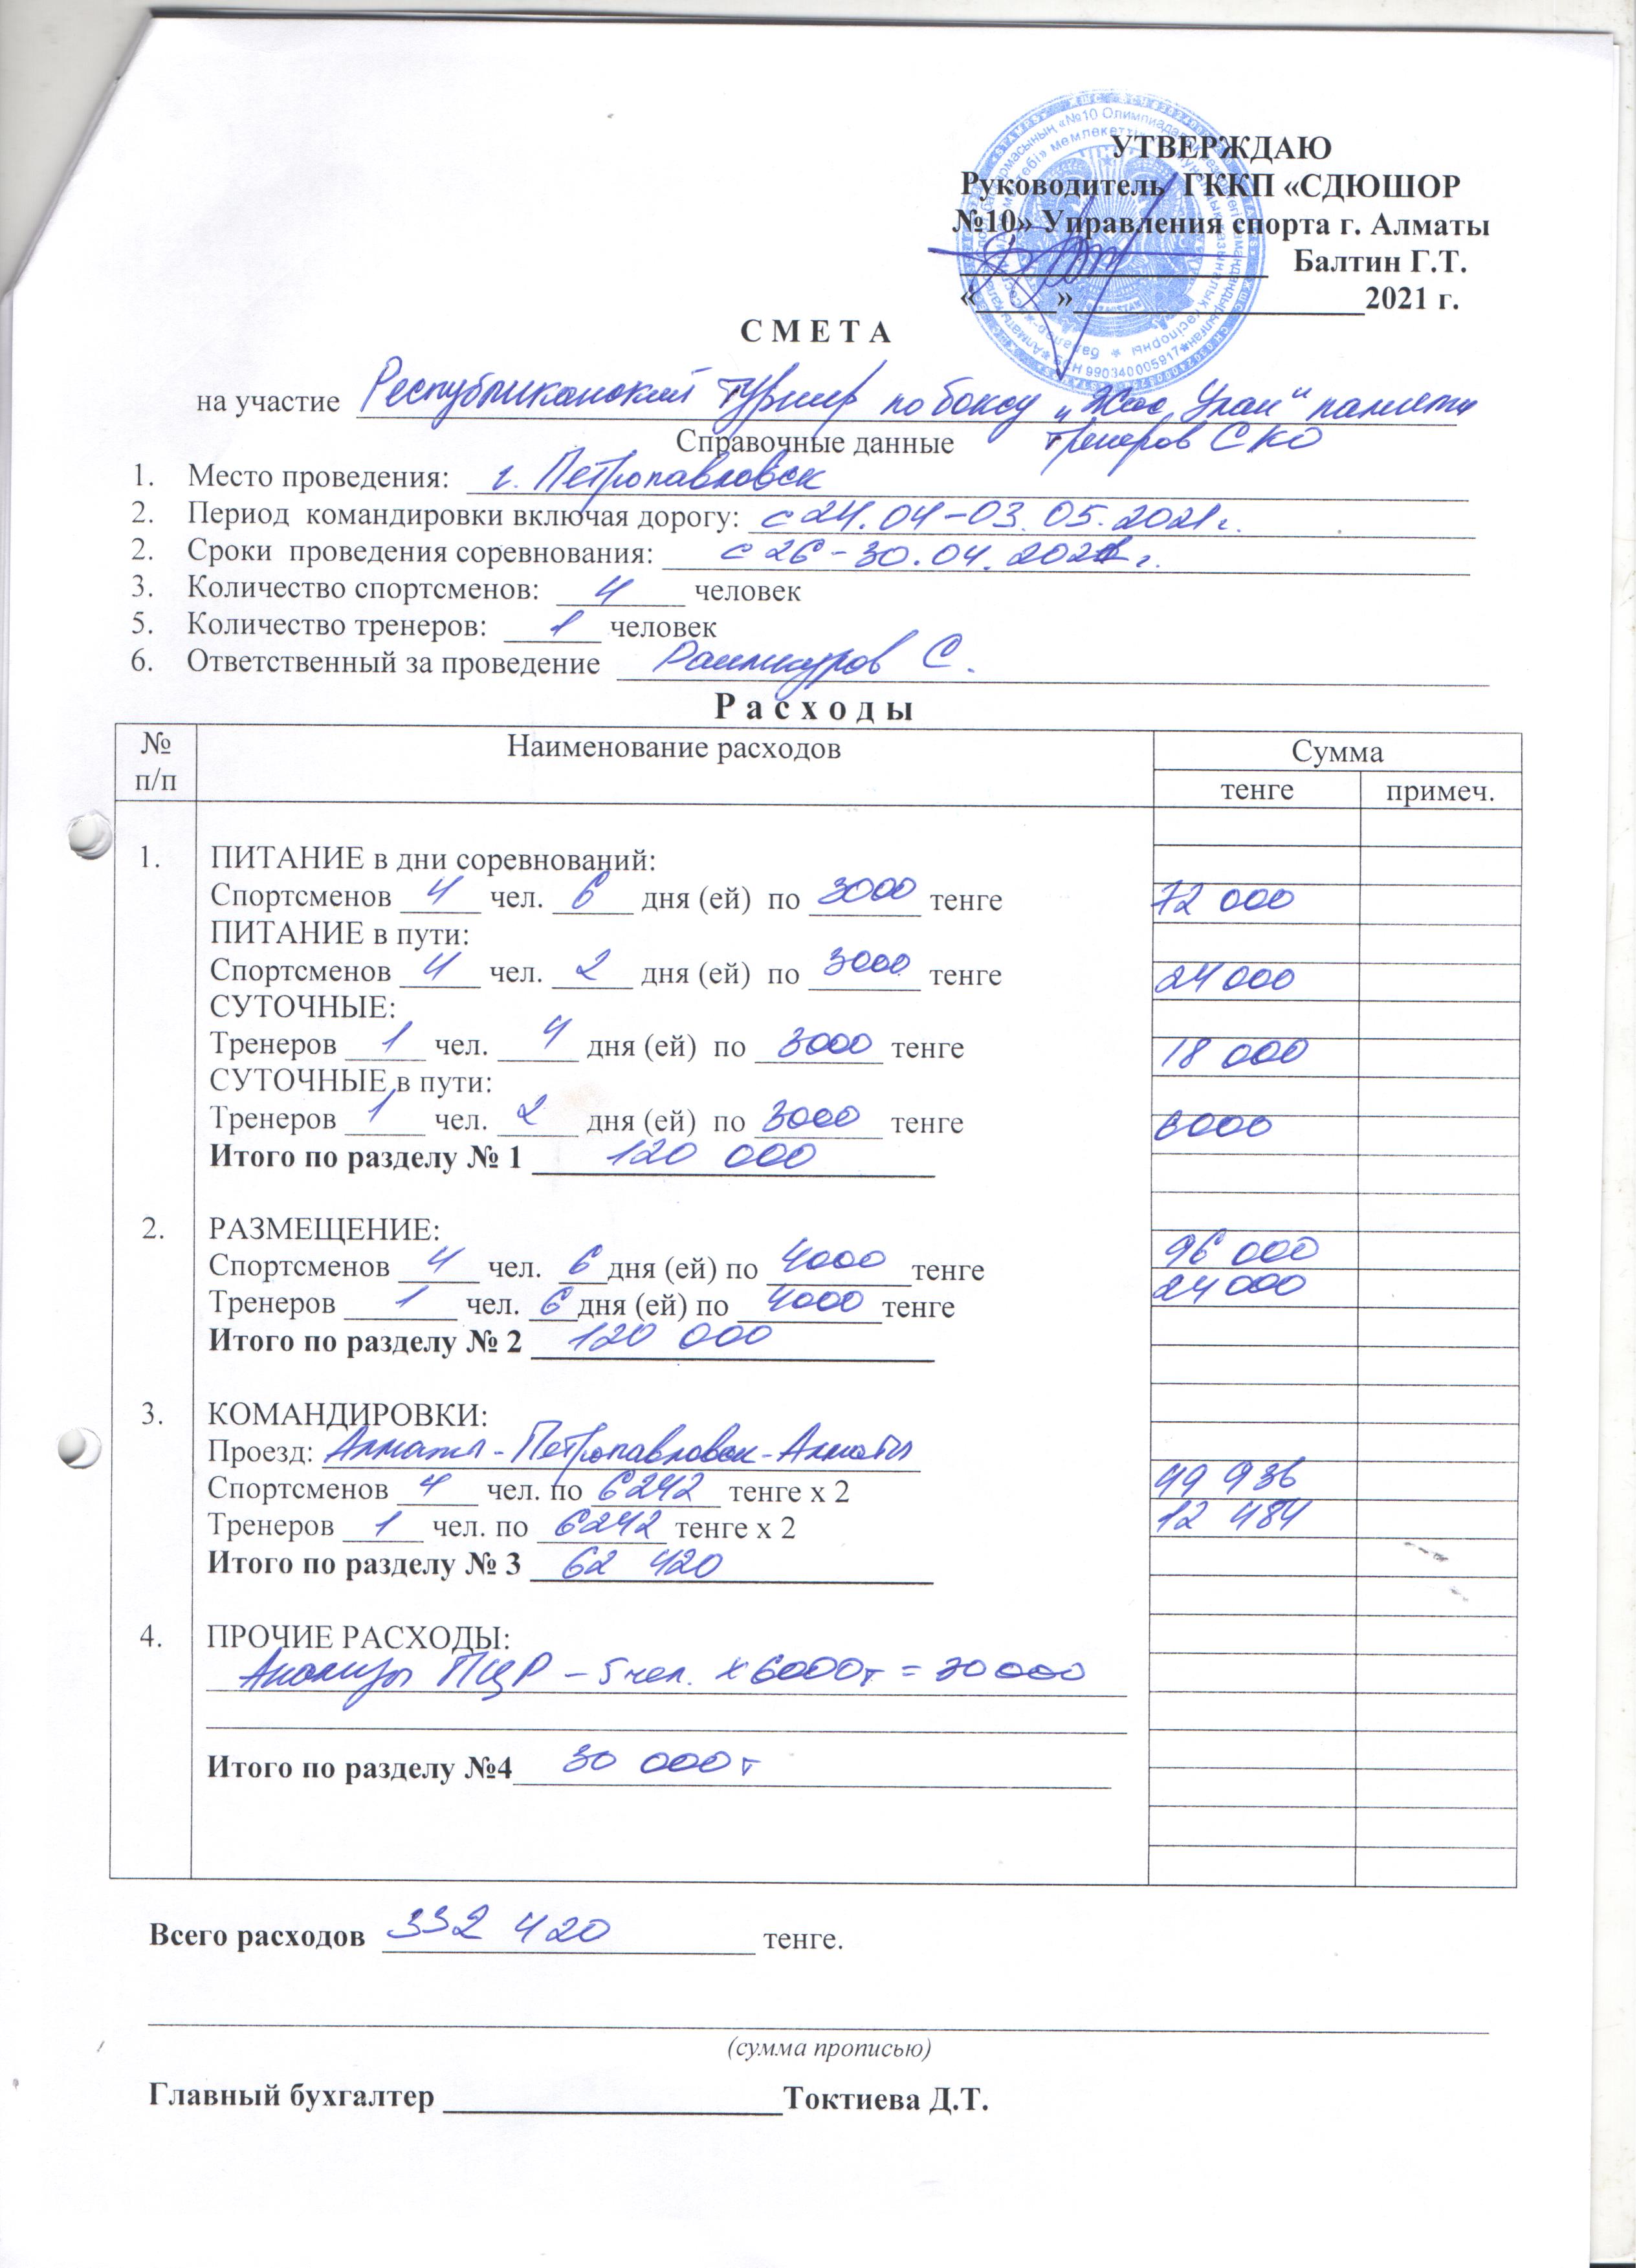 УТВЕРЖДАЮ
Руководитель ГККП «СДЮШОР
№10» Управления спорта г. Алматы
Балтин Г.Т.
«_____» 2021 г.
С М Е Т А
на участие Республиканский турнир по боксу "Жас Улан" памяти
тренеров СКО
Справочные данные
1. Место проведения: г. Петропавловск
2. Период командировки включая дорогу: с 24.04-03.05.2021г.
2. Сроки проведения соревнования: с 26-30.04.2021г.
3. Количество спортсменов: 4 человек
5. Количество тренеров: 1 человек
6. Ответственный за проведение С.
Р а с х о д ы
№ п/п Наименование расходов Сумма
тенге примеч.
1. ПИТАНИЕ в дни соревнований:
Спортсменов 4 чел. 6 дня (ей) по 3000 тенге 72 000
ПИТАНИЕ в пути:
Спортсменов 4 чел. 2 дня (ей) по 3000 тенге 24 000
СУТОЧНЫЕ:
Тренеров 1 чел. 4 дня (ей) по 3000 тенге 18 000
СУТОЧНЫЕ в пути:
Тренеров 1 чел. 2 дня (ей) по 3000 тенге 6000
Итого по разделу № 1 120 000
2. РАЗМЕЩЕНИЕ:
Спортсменов 4 чел. 6 дня (ей) по 4000 тенге 96 000
Тренеров 1 чел. 6 дня (ей) по 4000 тенге 24 000
Итого по разделу № 2 120 000
3. КОМАНДИРОВКИ:
Проезд: Алматы - Петропавловск - Алматы
Спортсменов 4 чел. по 6242 тенге х 2 49 936
Тренеров 1 чел. по 6242 тенге х 2 12 484
Итого по разделу № 3 62 420
4. ПРОЧИЕ РАСХОДЫ:
Анализы ПЦР - 5 чел. х 6000т = 30 000
Итого по разделу №4 30 000 т
Всего расходов 332 420 тенге.
(сумма прописью)
Главный бухгалтер Токтиева Д.Т.